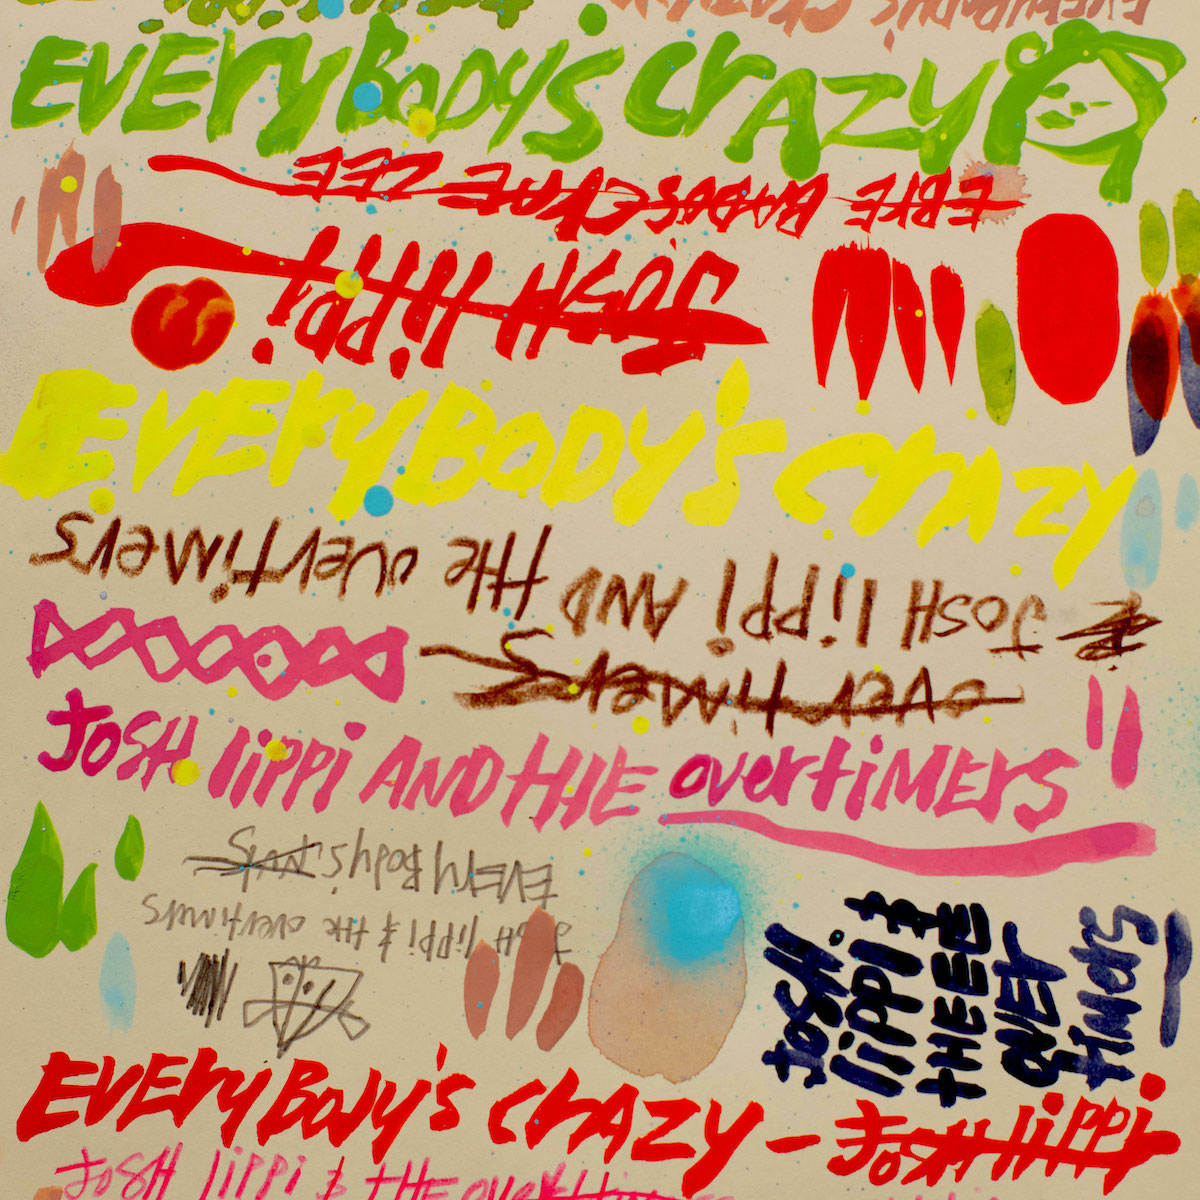 EVERYBODY'S CRAZY
EVERYBODY'S CRAZY
JOSH lippi
EVERYBODY'S CRAZY
JOSH lippi AND tHE overtiMers
overtiMers
JOSH lippi AND tHE overtiMErs
EVERY BODY'S
JOSH lippi & tHE overtimers
JOSH
lippi &
tHEEE
OVER
tiMErs
EVERYBODY'S CRAZY – JOSH lippi
JOSH lippi & tHE